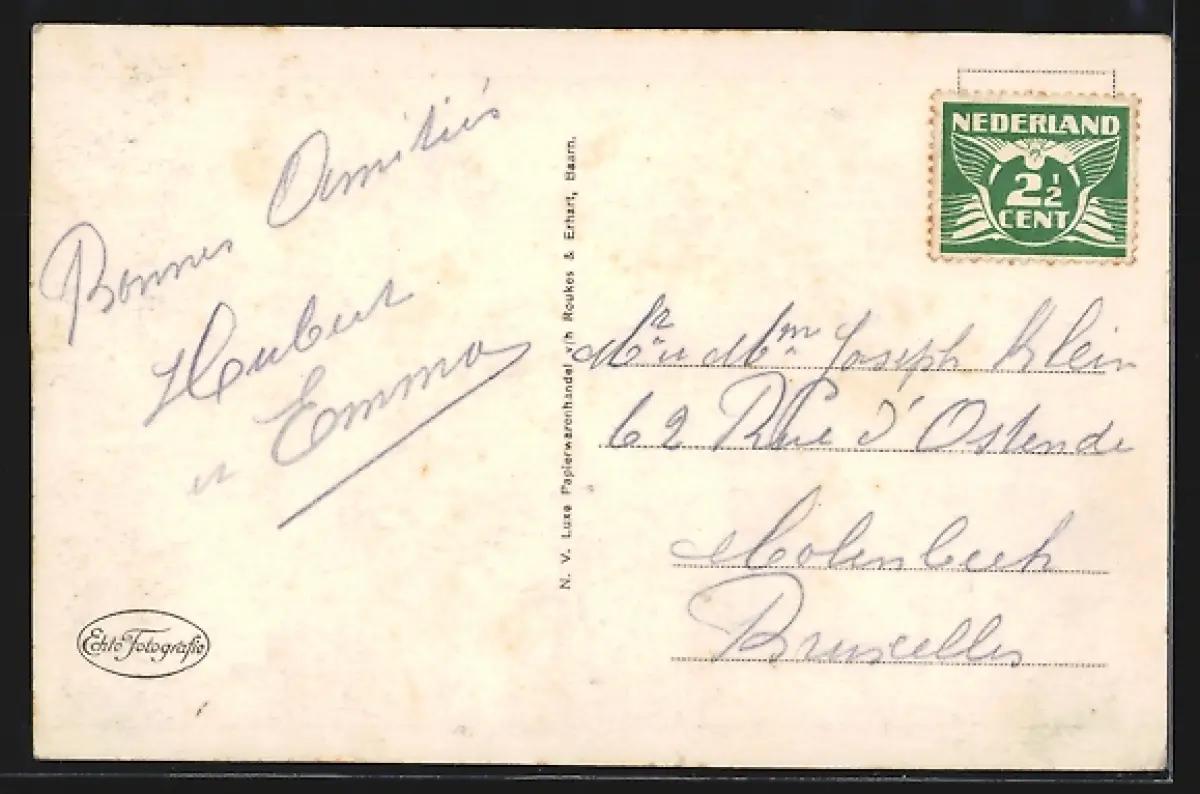 Bonnes Amitiés
Hubert
et Emma
Echte Fotografie
N. V. Luxe Papierwarenhandel v/h Roukes & Erhart, Baarn.
NEDERLAND
2 1/2
CENT
Mr u Mm Joseph Klein
62 Rue d'Ostende
Molenbeek
Bruxelles